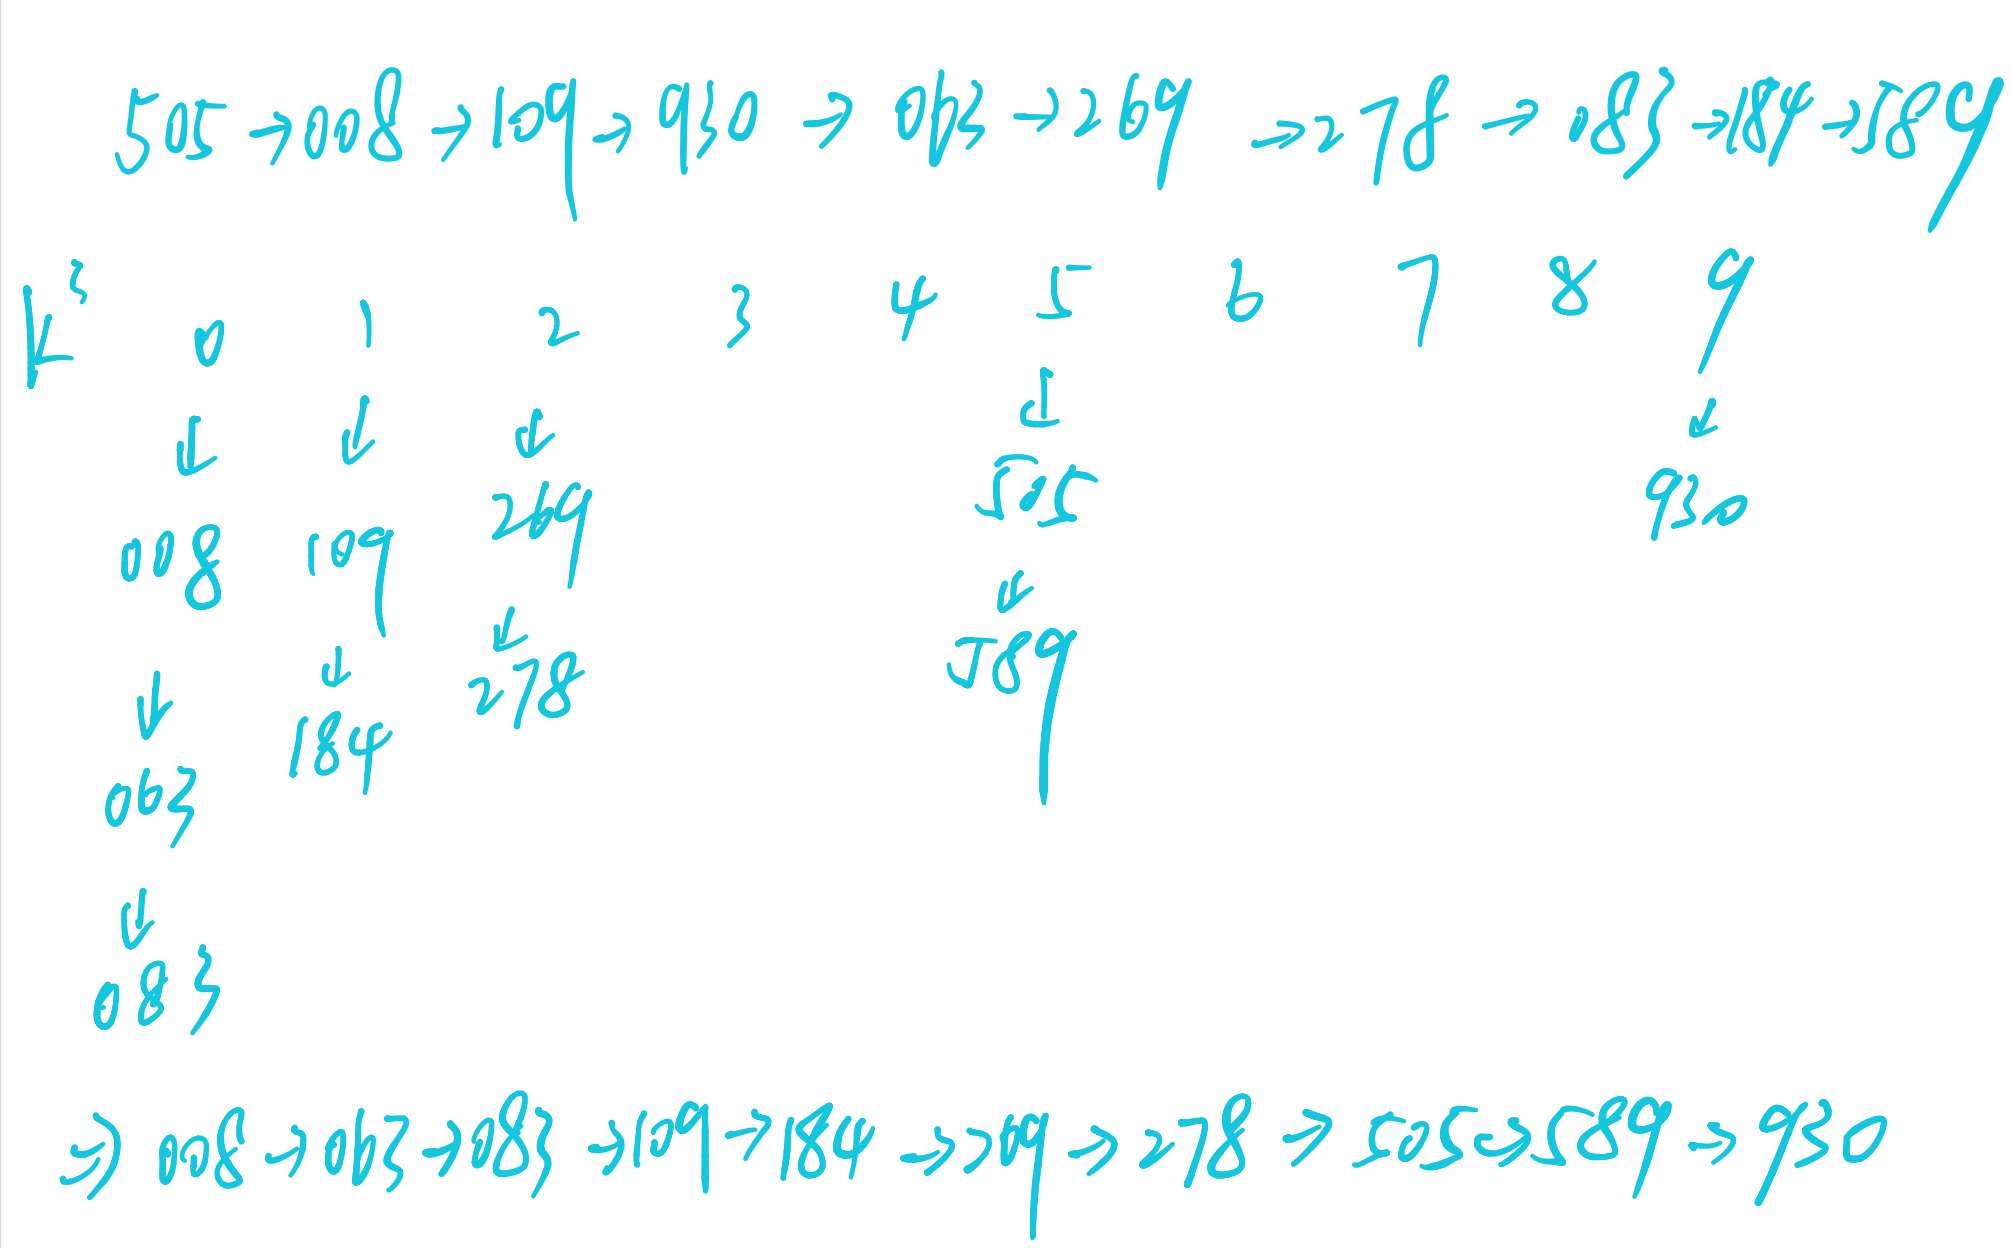 505 → 008 → 109 → 930 → 063 → 269 → 278 → 083 → 184 → 589
K³ 0 1 2 3 4 5 6 7 8 9
↓ ↓ ↓ ↓ ↓
008 109 269 505 930
↓ ↓ ↓ ↓
063 184 278 589
↓
083
⇒ 008 → 063 → 083 → 109 → 184 → 269 → 278 → 505 → 589 → 930